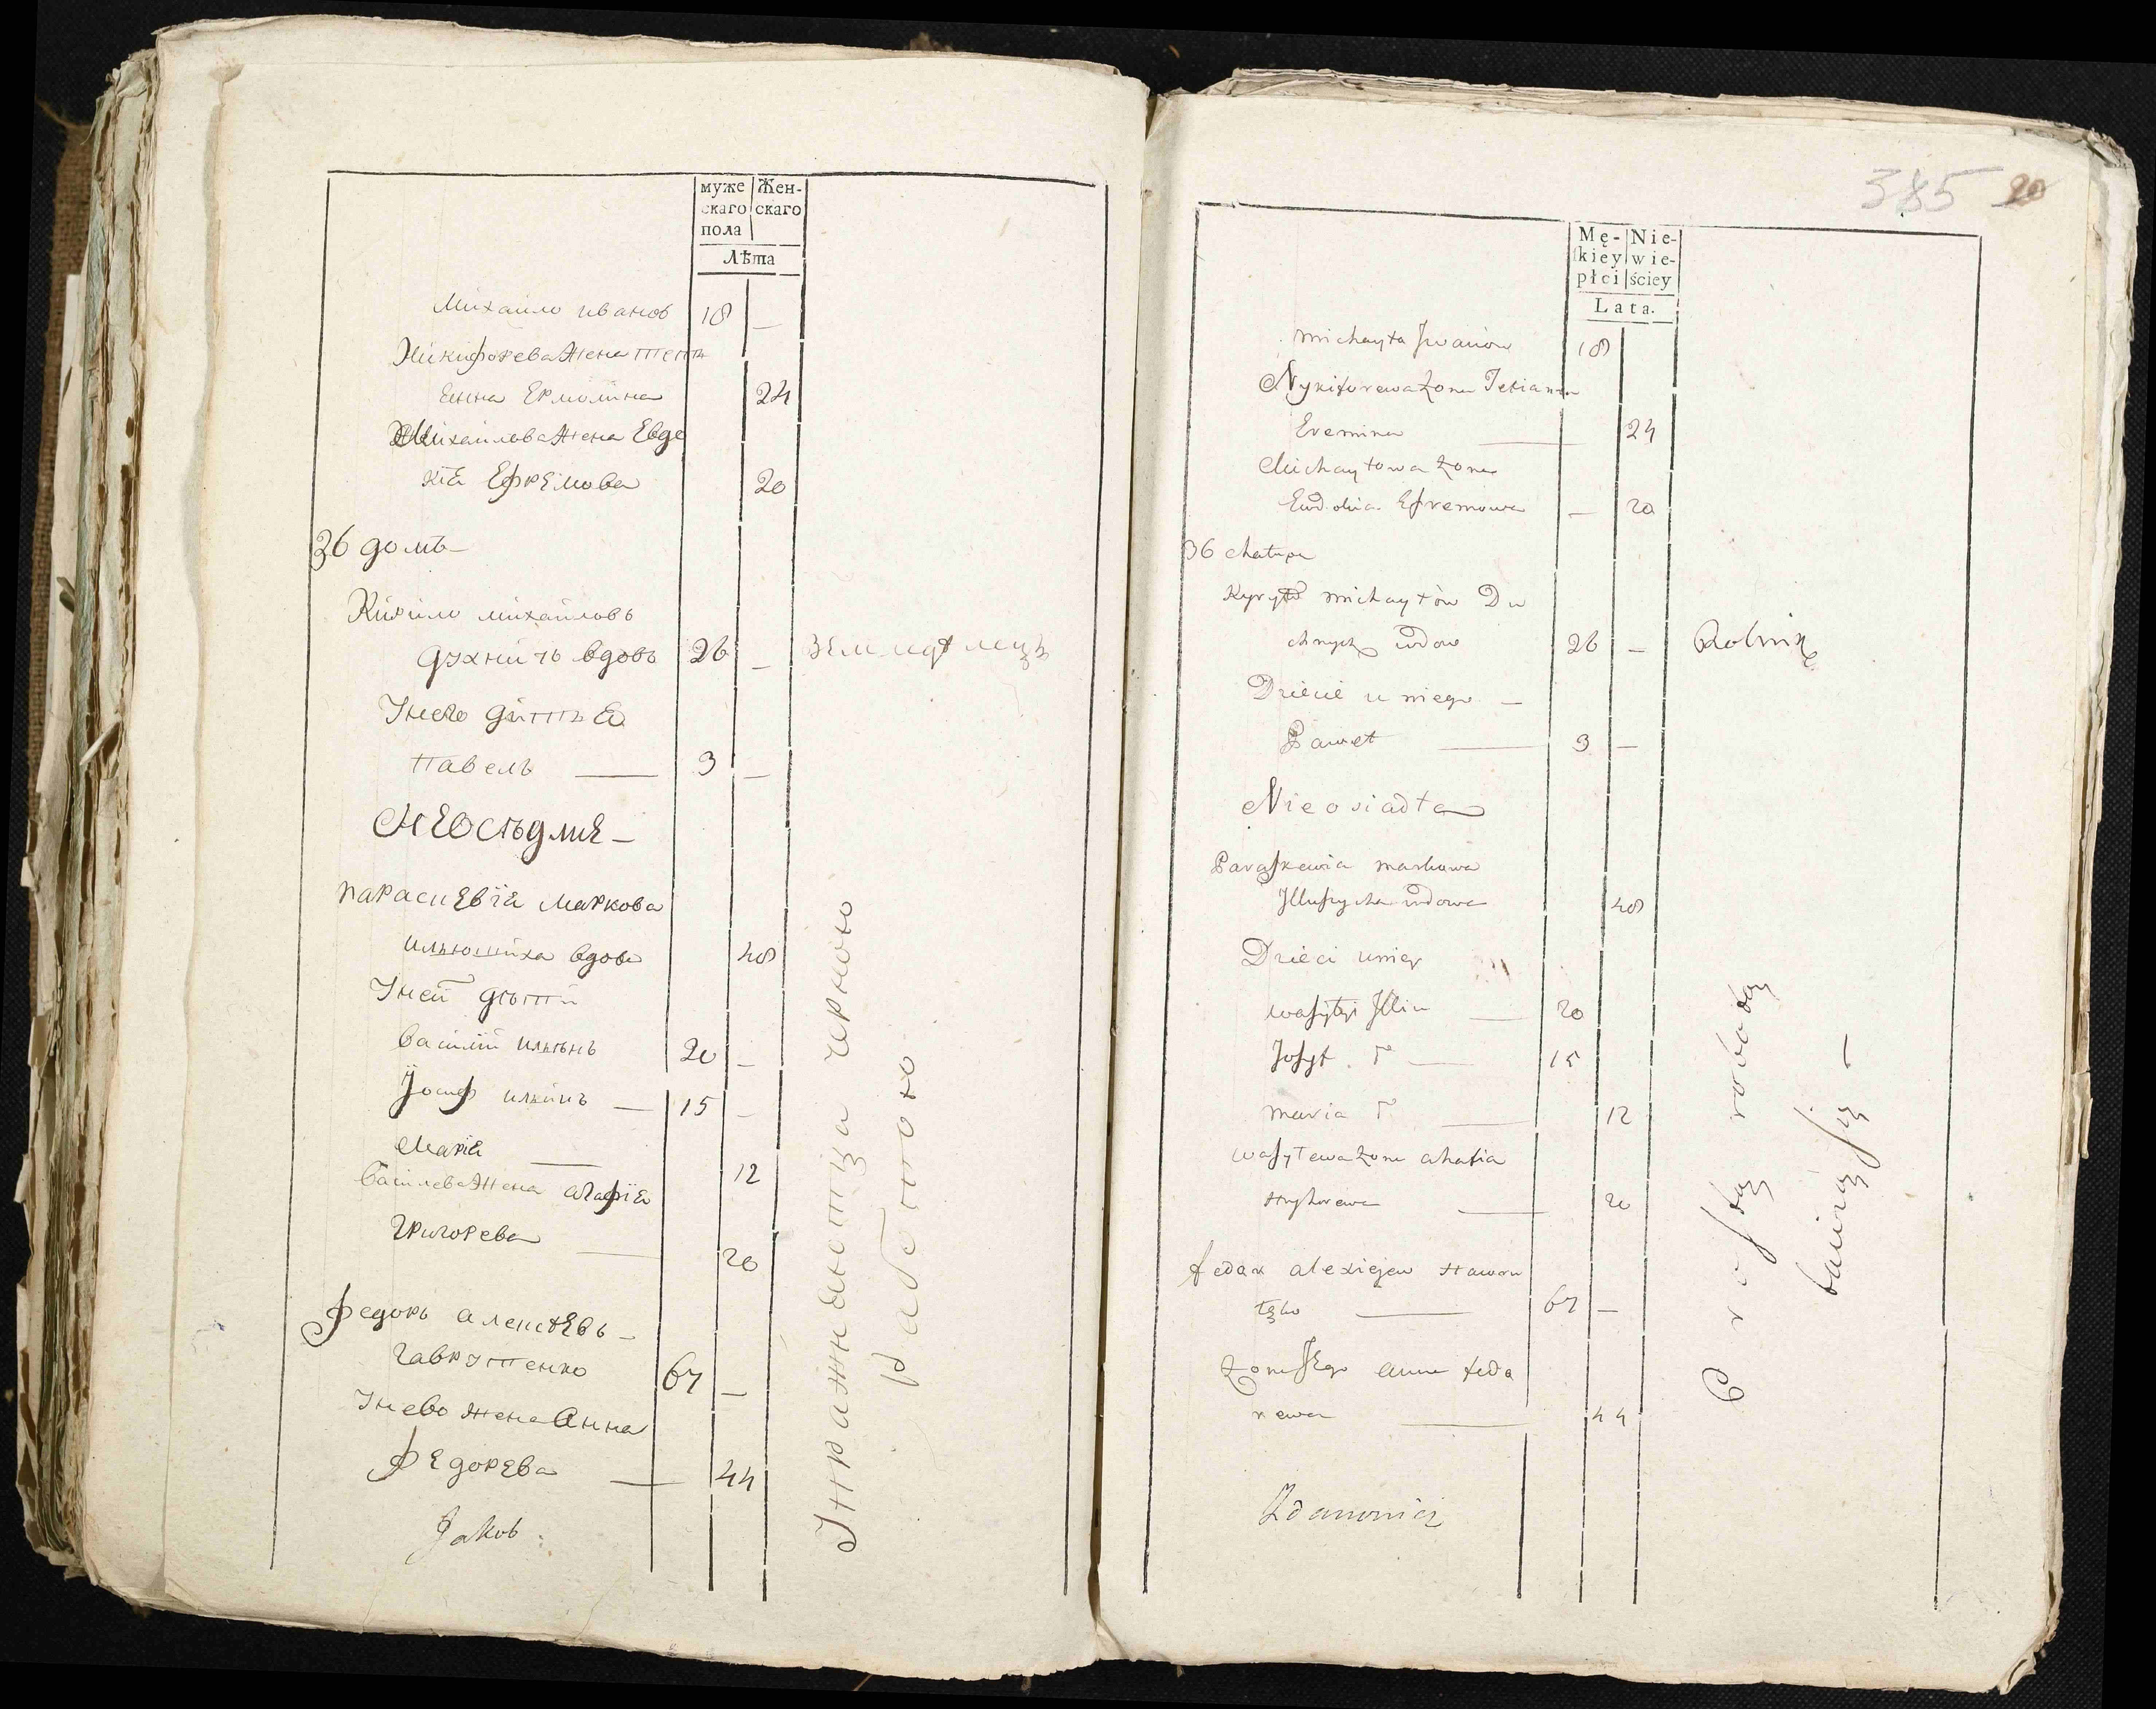 муже скаго пола
Жен- скаго
Лѣта
Михаило иванов 18 —
Никифорева жена тетя
енна Ермолина 24
Михайлова жена Евдо
кіа Ефремова 20
36 домъ —
Кирило михаиловъ
духничъ вдовъ 26 — земледѣлецъ
Унего дитъа
Павелъ — 3 —
Неосѣдлие —
Параскевіа Маркова
ильюшиха вдова 48
Уней дѣти
Василій ильинъ 20 —
Йосиф ильинъ — 15 —
Маріа — 12
Василева жена агафіа
Григорева — 20
Федоръ алексѣевъ —
Гаврутенко 67 —
Унево жена Анна
Федорева — 44
Jakob
Упражнѣютца черною
работою
385 20
Mę- skiey płci
Nie- wie- ściey
Lata.
Michayła Jwanów 18
Nykiforewa żona Tetianna
Eremina — 24
Michayłowa żona
Ewdokia Efremowa — 20
36 chałupa
Kyryło michayłów Du
chnycz wdow 26 — Rolnik
Dziecie u niego —
Paweł — 3 —
Nieosiadła
Paraskewia markowa
Jlluszycha wdowa 48
Dzieci u niey
Wasylyi Jllin — 20
Josyf . T — 15
maria T — 12
wasylewa żona ahafia
Hryhorewa — 20
fedor alexiejew Hawru
tęko — 67 —
żona Jego anna fedo
rewa — 44
Prostą robotą
bawiąsię —